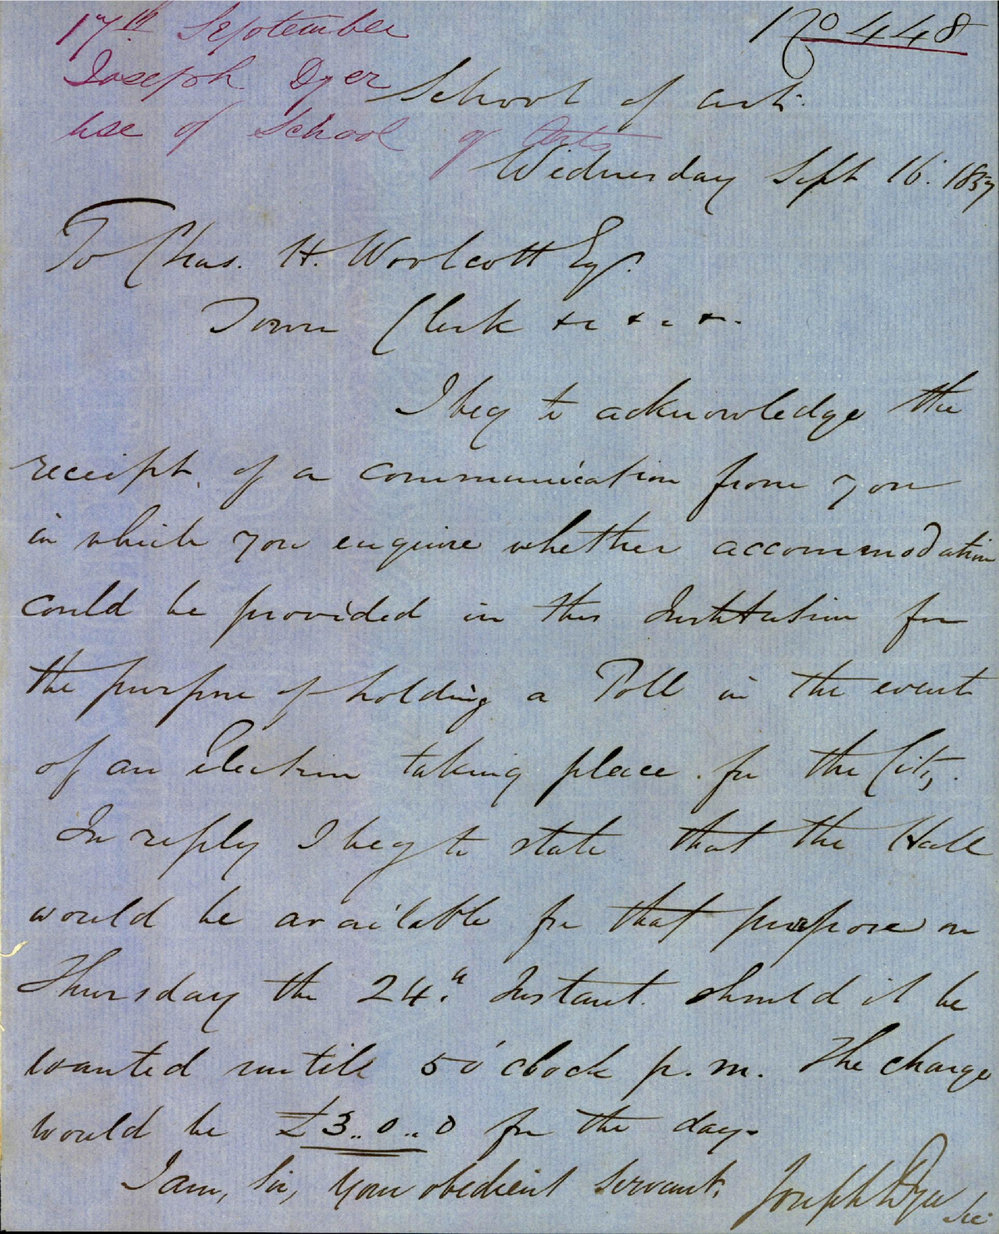 17th September
Joseph Dyer
use of School of Arts
No 448
School of Arts.
Wednesday Sept 16. 1857
To Chas. H. Woolcott Esq.
Town Clerk &c &c &c.
I beg to acknowledge the
receipt of a communication from you
in which you enquire whether accommodation
could be provided in this Institution for
the purpose of holding a Poll in the event
of an Election taking place for the City.
In reply I beg to state that the Hall
would be available for that purpose on
Thursday the 24th Instant should it be
wanted untill 5 o'clock p.m. The charge
would be £3..0..0 for the day.
I am, Sir, Your obedient Servant,
Joseph Dyer
Sec